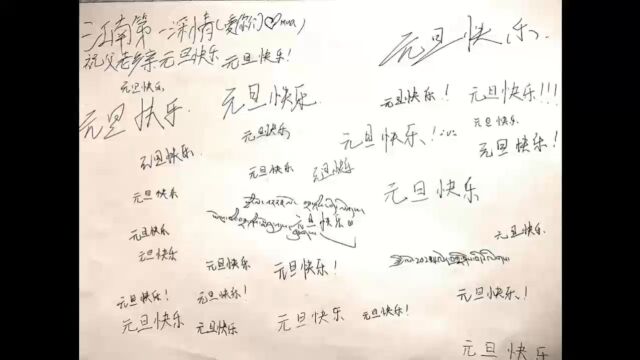 江南第一深情(爱你们)
祝父老乡亲元旦快乐 元旦快乐!
元旦快乐
元旦快乐、
元旦快乐.
元旦快乐.
元旦快乐! 元旦快乐!!!
元旦快乐
元旦快乐、!
元旦快乐.
元旦快乐!
元旦快乐.
元旦快乐 元旦快乐
元旦快乐
元旦快乐
元旦快乐
元旦快乐
元旦快乐.
元旦快乐
元旦快乐 元旦快乐!
元旦快乐! 元旦快乐!
元旦快乐、!
元旦快乐 元旦快乐 元旦快乐 元旦快乐!
元旦快乐